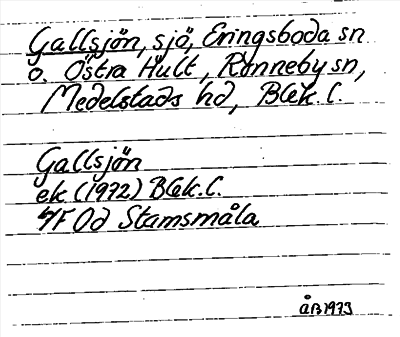 Gallsjön, sjö, Eringsboda sn
o. Östra Hult, Ronneby sn,
Medelstads hd, Blek. l.
Gallsjön
ek. (1972) Blek. l.
4F 0d Stamsmåla
ÅB 1973